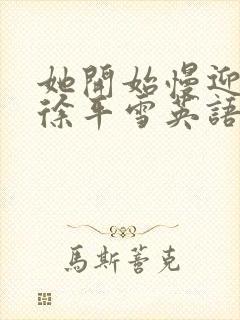 她開始慢迎
徐平雪英語
馬斯萻克